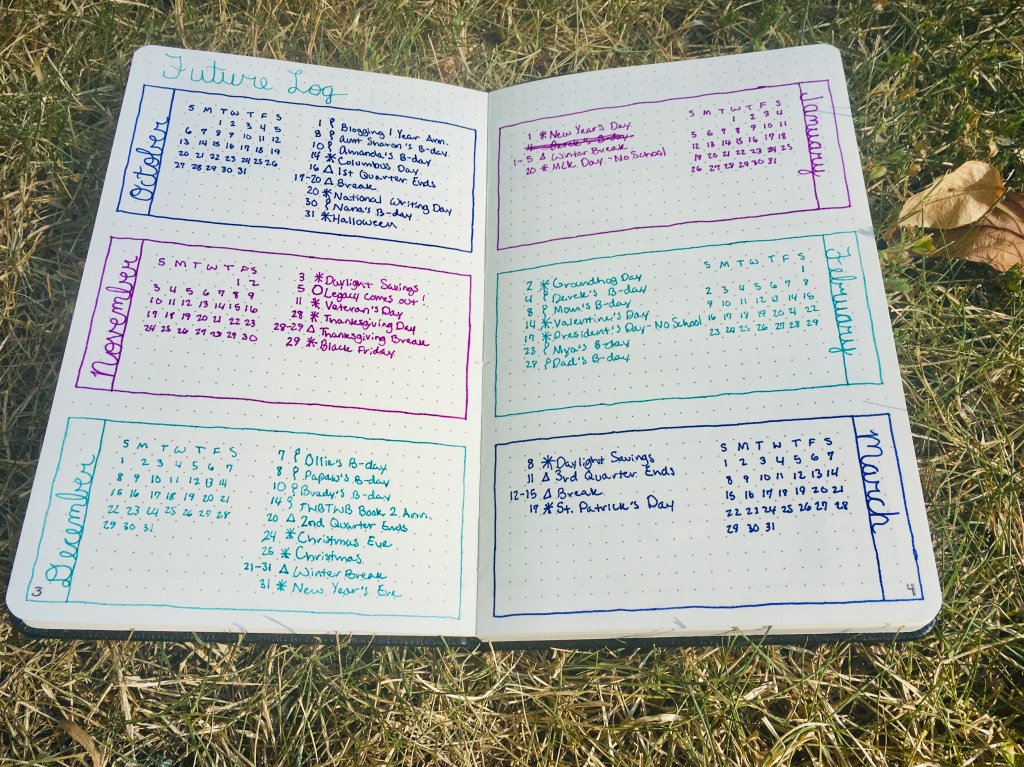 Future Log
October
S M T W T F S
1 2 3 4 5
6 7 8 9 10 11 12
13 14 15 16 17 18 19
20 21 22 23 24 25 26
27 28 29 30 31
1 Blogging 1 Year Ann.
8 Aunt Sharon's B-day
10 Amanda's B-day
14 * Columbus Day
16 Δ 1st Quarter Ends
17-20 Δ Break
20 * National Writing Day
30 Nana's B-day
31 * Halloween
November
S M T W T F S
1 2
3 4 5 6 7 8 9
10 11 12 13 14 15 16
17 18 19 20 21 22 23
24 25 26 27 28 29 30
3 * Daylight Savings
5 O Legacy comes out!
11 * Veteran's Day
28 * Thanksgiving Day
28-29 Δ Thanksgiving Break
29 * Black Friday
December
S M T W T F S
1 2 3 4 5 6 7
8 9 10 11 12 13 14
15 16 17 18 19 20 21
22 23 24 25 26 27 28
29 30 31
7 Ollie's B-day
8 Papaw's B-day
10 Brady's B-day
14 TWBTWB Book 2 Ann.
20 Δ 2nd Quarter Ends
24 * Christmas Eve
25 * Christmas
21-31 Δ Winter Break
31 * New Year's Eve
3
January
1 * New Year's Day
4 Derek's B-day
1-5 Δ Winter Break
20 * MLK Day - No School
S M T W T F S
1 2 3 4
5 6 7 8 9 10 11
12 13 14 15 16 17 18
19 20 21 22 23 24 25
26 27 28 29 30 31
February
2 * Groundhog Day
4 Derek's B-day
8 Mom's B-day
14 * Valentine's Day
17 * President's Day - No School
23 Mya's B-day
28 Dad's B-day
S M T W T F S
1
2 3 4 5 6 7 8
9 10 11 12 13 14 15
16 17 18 19 20 21 22
23 24 25 26 27 28 29
March
8 * Daylight Savings
11 Δ 3rd Quarter Ends
12-15 Δ Break
17 * St. Patrick's Day
S M T W T F S
1 2 3 4 5 6 7
8 9 10 11 12 13 14
15 16 17 18 19 20 21
22 23 24 25 26 27 28
29 30 31
4